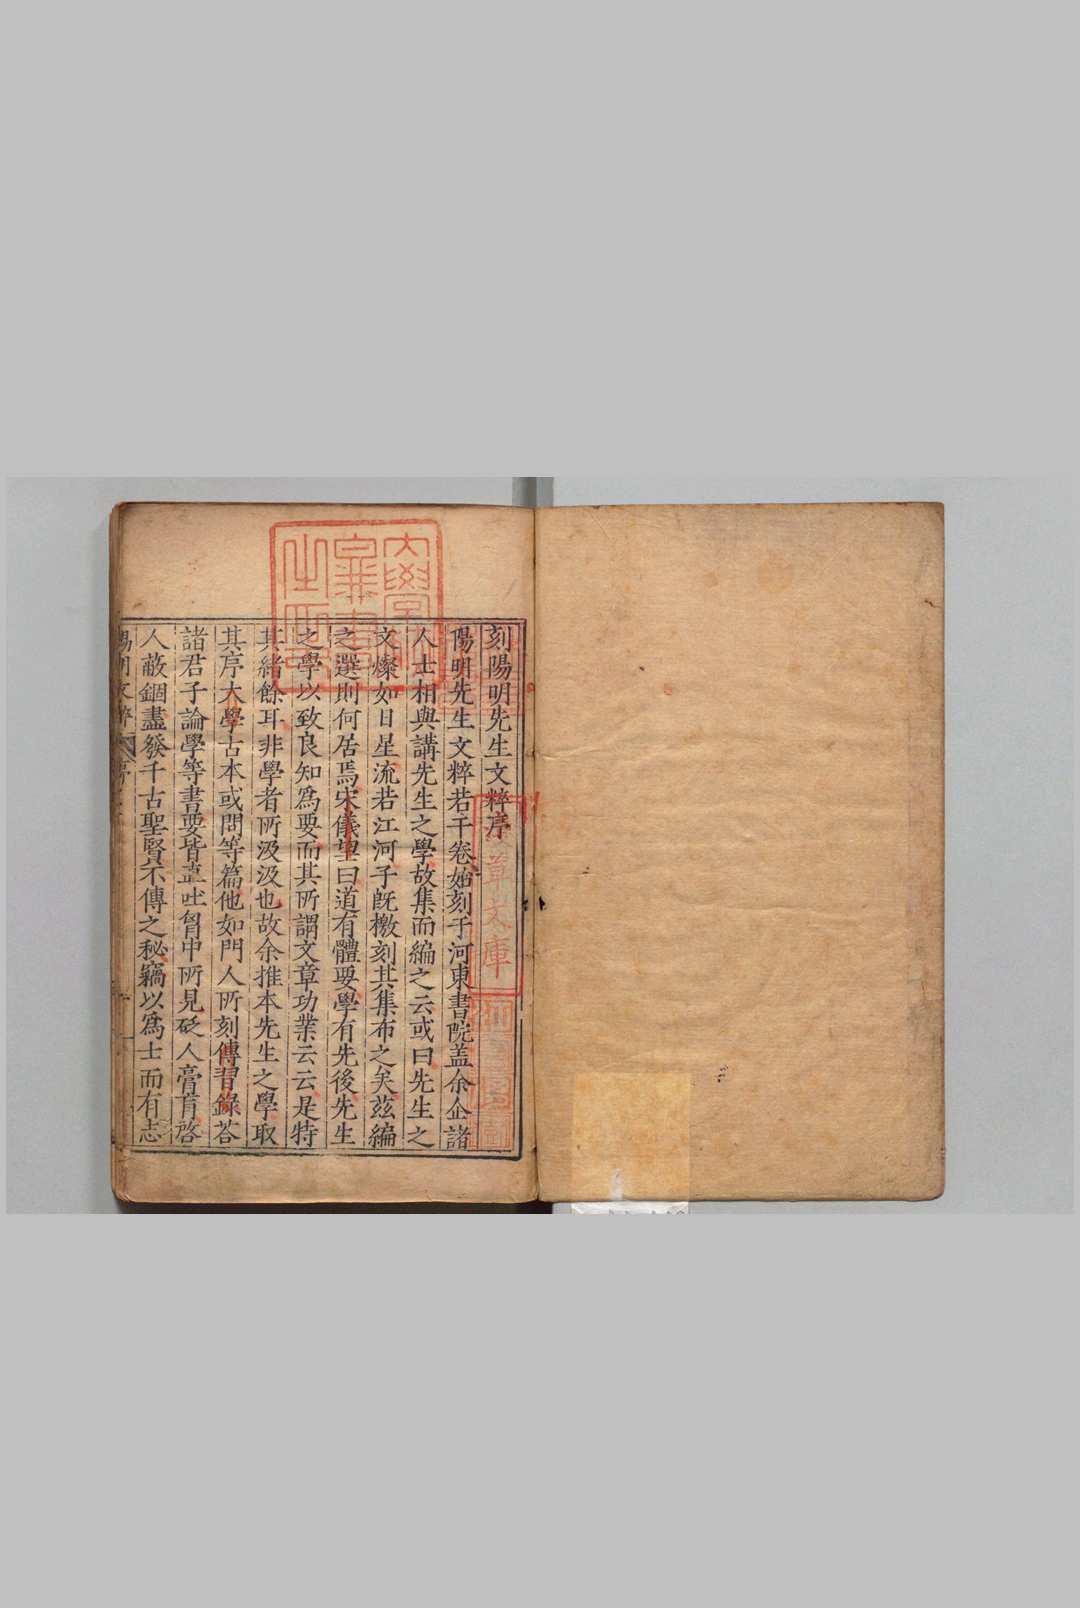 刻陽明先生文粹序
陽明先生文粹若干卷始刻于河東書院盖余企諸
人士相與講先生之學故集而編之云或曰先生之
文燦如日星流若江河子旣檄刻其集布之矣兹編
之選則何居焉宋儀望曰道有體要學有先後先生
之學以致良知爲要而其所謂文章功業云云是特
其緒餘耳非學者所汲汲也故余推本先生之學取
其序大學古本或問等篇他如門人所刻傳習錄荅
諸君子論學等書要皆直吐胷中所見砭人膏肓啓
人蔽錮盡發千古聖賢不傳之秘竊以爲士而有志
陽明文粹
章文庫